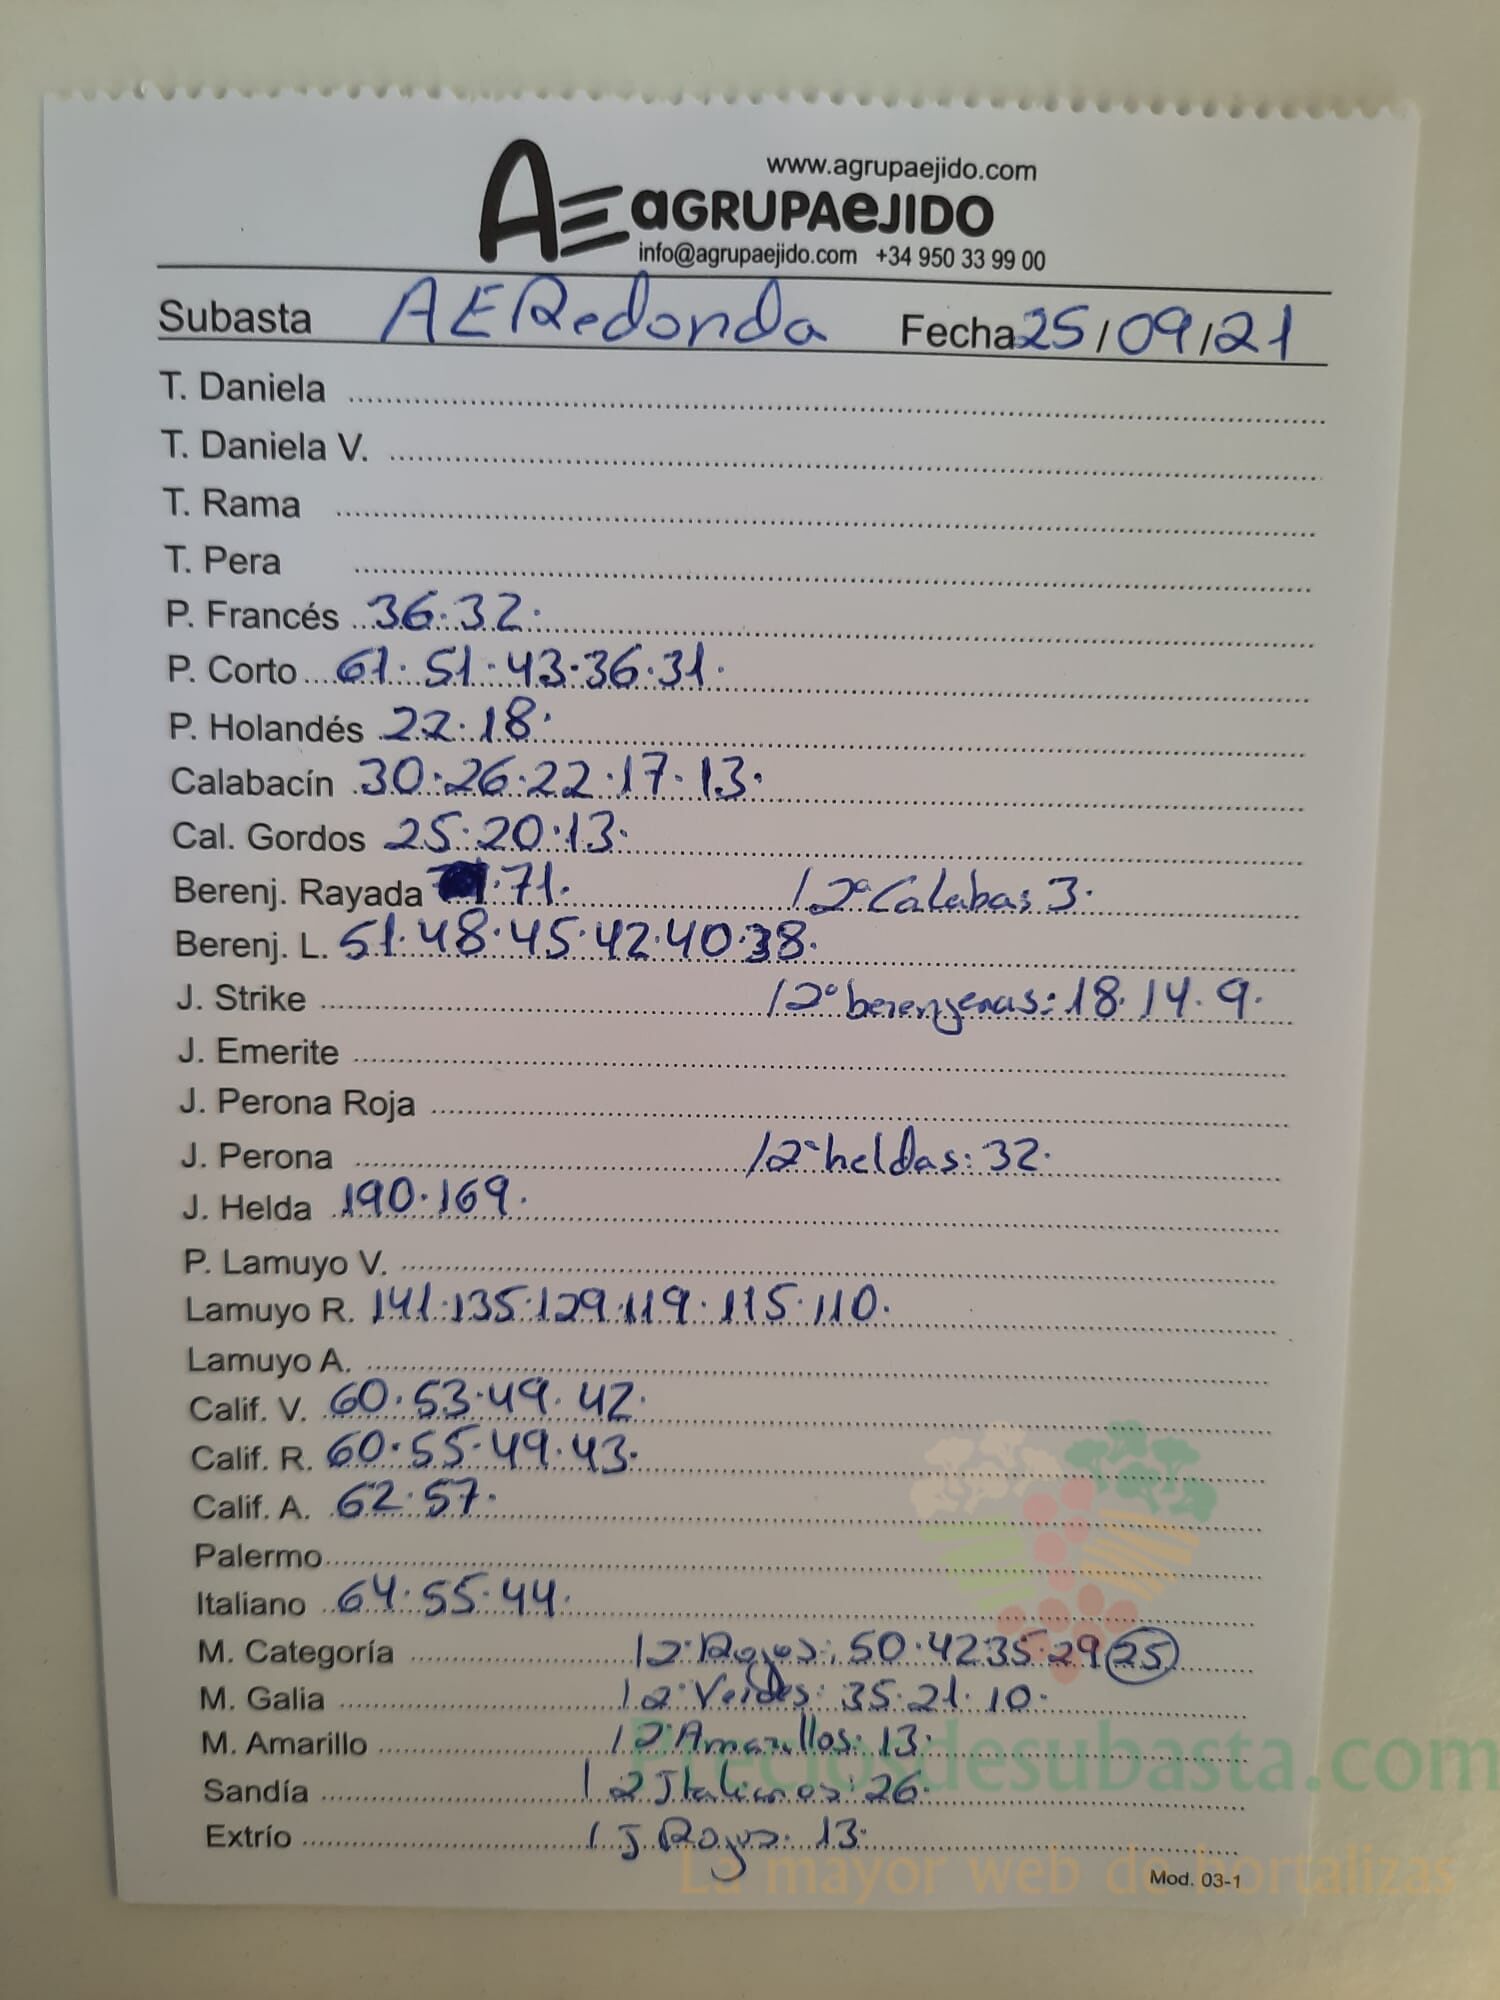 www.agrupaejido.com
AE aGRUPAeJIDO
info@agrupaejido.com +34 950 33 99 00
Subasta AERedonda Fecha 25/09/21
T. Daniela
T. Daniela V.
T. Rama
T. Pera
P. Francés 36·32·
P. Corto 61·51·43·36·31·
P. Holandés 22·18·
Calabacín 30·26·22·17·13·
Cal. Gordos 25·20·13·
Berenj. Rayada 71· /2ª Calabas 3·
Berenj. L. 51·48·45·42·40·38·
J. Strike /2ª berenjenas: 18·14·9·
J. Emerite
J. Perona Roja
J. Perona /2ª heldas: 32·
J. Helda 190·169·
P. Lamuyo V.
Lamuyo R. 141·135·129·119·115·110·
Lamuyo A.
Calif. V. 60·53·49·42·
Calif. R. 60·55·49·43·
Calif. A. 62·57·
Palermo
Italiano 64·55·44·
M. Categoría /2ª Rojos: 50·42·35·29 25
M. Galia /2ª Verdes: 35·21·10·
M. Amarillo /2ª Amarillos: 13·
Sandía /2 Italianos: 26·
Extrío / J Rojos: 13·
Mod. 03-1
Preciosdesubasta.com
La mayor web de hortalizas